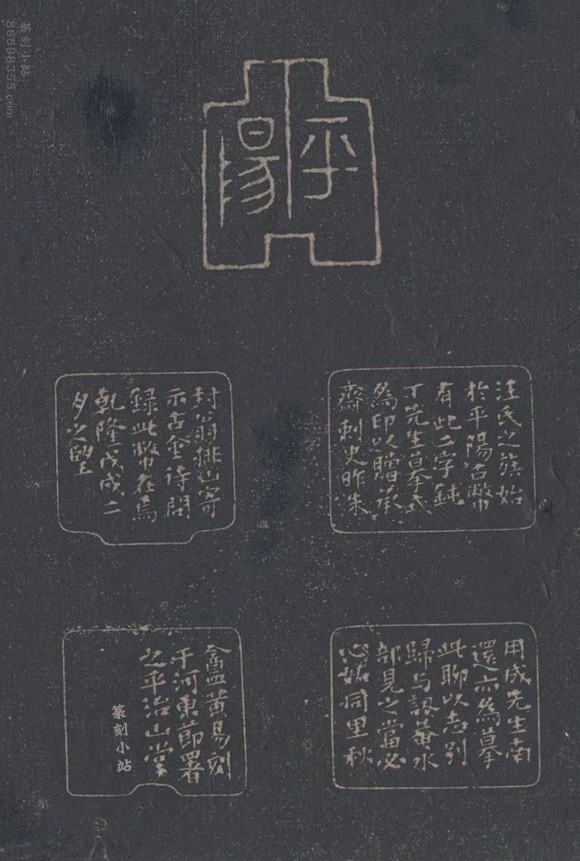 平
陽
汪氏之族始
於平陽古幣
有此二字鈍
丁先生摹式
為印以贈承
齋刺史昨朱
封翁排山寄
示古金待問
錄此幣在焉
乾隆戊戌二
月之望
用成先生南
還亦為摹
此聊以志別
歸与認葊水
部見之當必
心妬同里秋
盦黃易刻
于河東節署
之平治山堂
篆刻小站
篆刻小站
86698355.com